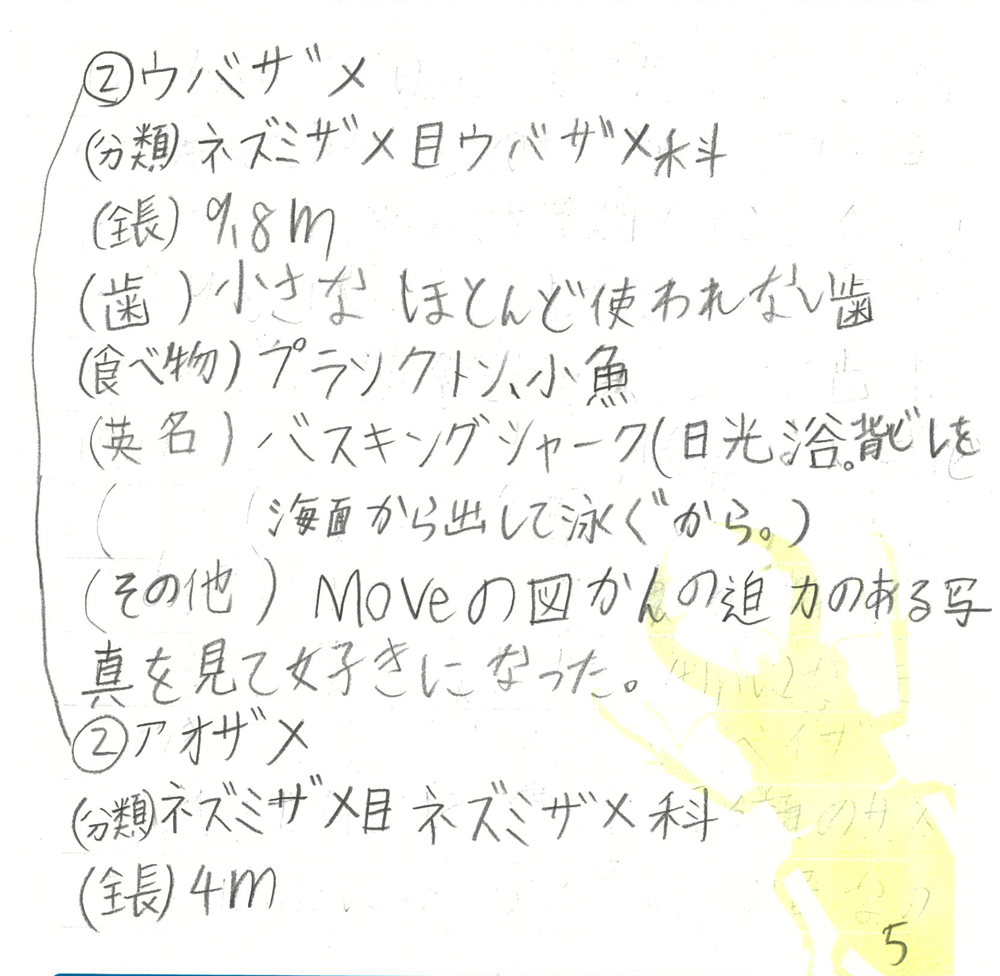 ②ウバザメ
(分類)ネズミザメ目ウバザメ科
(全長)9.8m
(歯)小さな ほとんど使われない歯
(食べ物)プランクトン、小魚
(英名)バスキングシャーク(日光浴。背びれを
( 海面から出して泳ぐから。)
(その他)MOVeの図かんの迫力のある写
真を見て好きになった。
②アオザメ
(分類)ネズミザメ目ネズミザメ科
(全長)4m
5